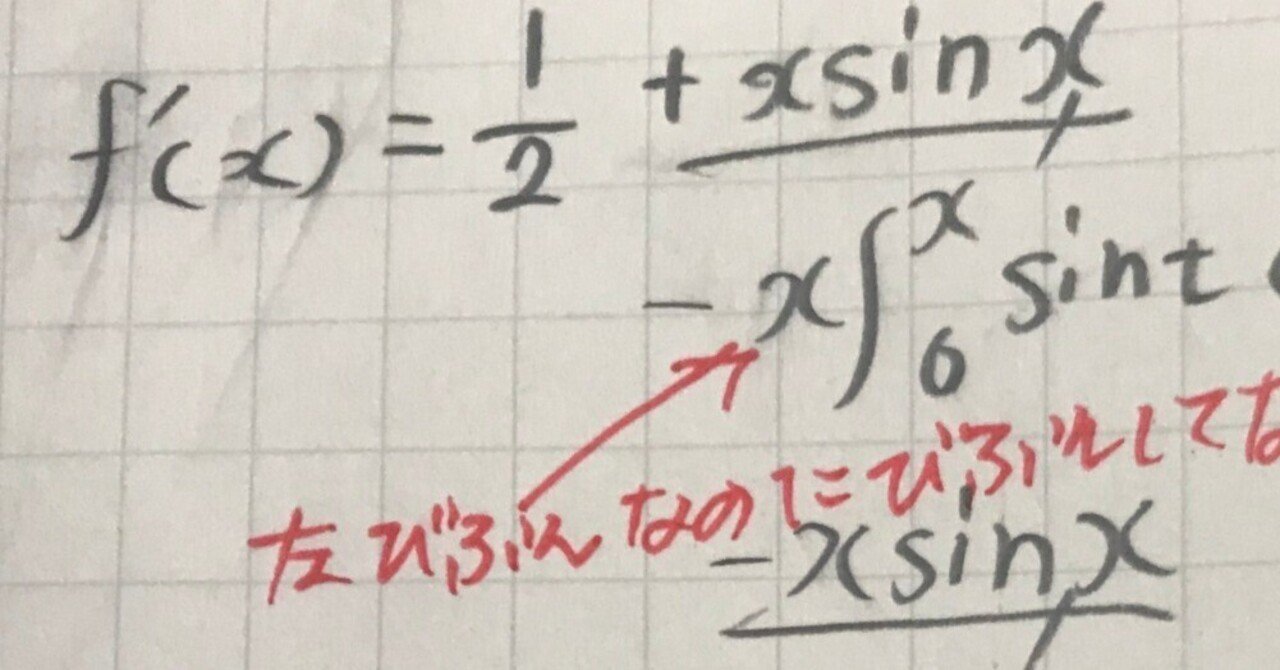 f'(x) = 1/2 + x sin x
- x∫₀ˣ sin t
左びぶんなのにびぶんしてな
- x sin x